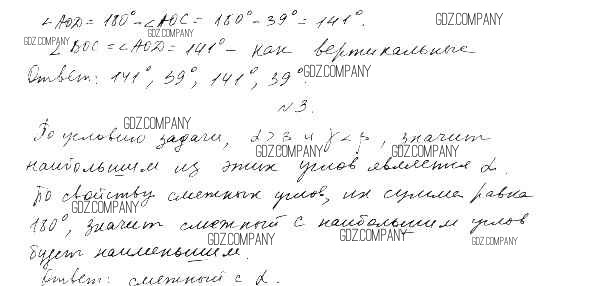 ∠AOD = 180° - ∠AOC = 180° - 39° = 141°. GDZ.COMPANY
GDZ.COMPANY GDZ.COMPANY
∠BOC = ∠AOD = 141° - как вертикальные
Ответ: 141°, 39°, 141°, 39°. GDZ.COMPANY
№3.
GDZ.COMPANY
По условию задачи, α > β и γ < β, значит
GDZ.COMPANY GDZ.COMPANY
наибольшим из этих углов является α.
По свойству смежных углов, их сумма равна
GDZ.COMPANY
180°, значит смежный с наибольшим углов
GDZ.COMPANY GDZ.COMPANY GDZ.COMPANY
будет наименьшим.
Ответ: смежный с α.